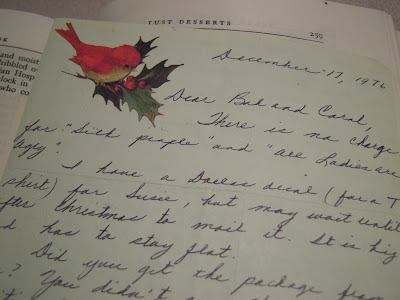 JUST DESSERTS
and moist
December 17, 1976
Dear Bob and Carol,
There is no charge
for "Sick people" and "all Ladies are
Ugly".
I have a Dallas decal (for a T
shirt) for Susie, but may wait until
fter Christmas to mail it. It is big
d has to stay flat.
Did you get the package from
? You didn't